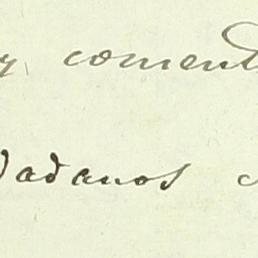 y coment
dadanos